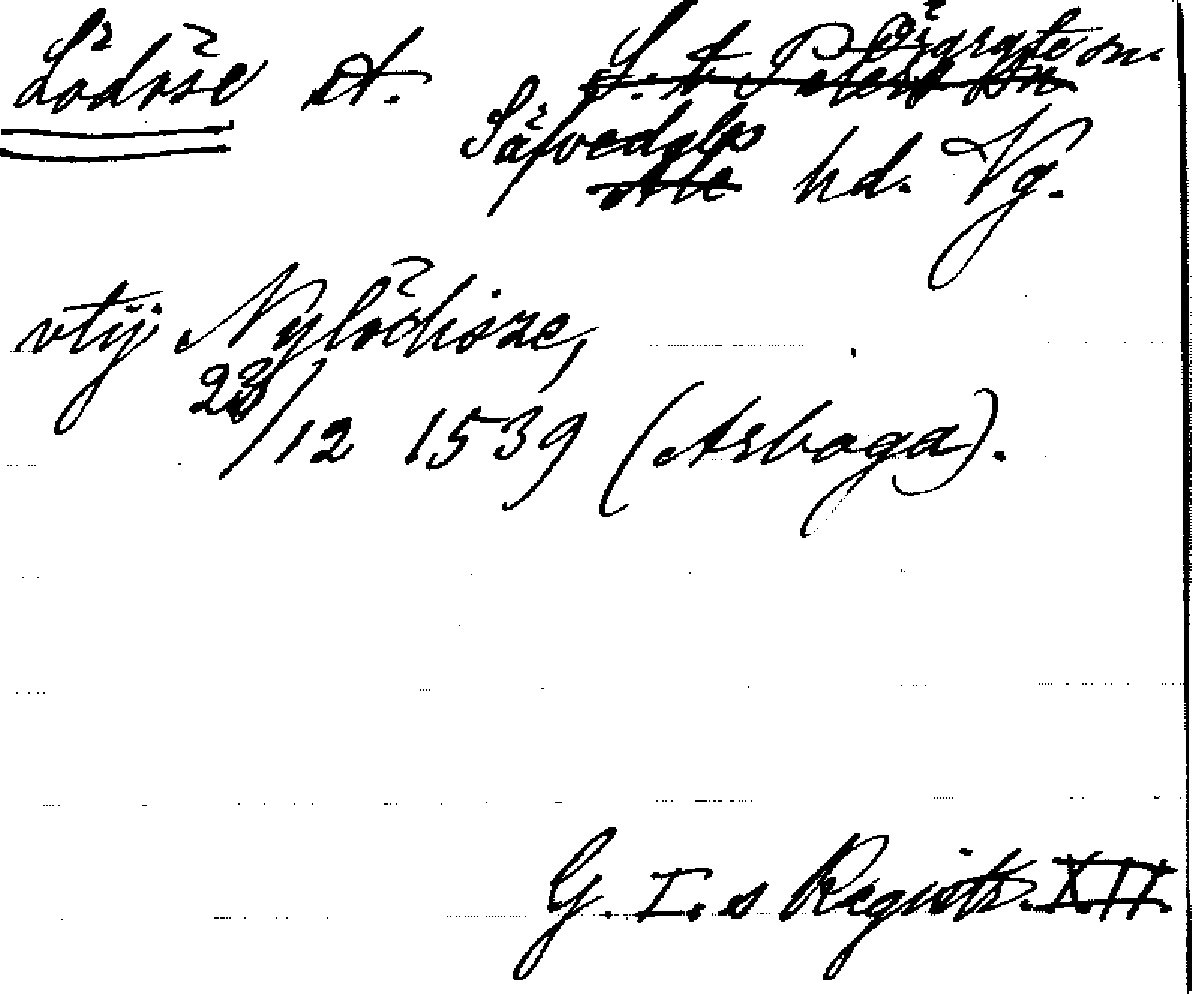 Lödöse st. S:t Peders sn Örgryte sn.
Säfvedals Ale hd. Vg.
vtij Nylödisze,
23/12 1539 (Arboga).
G. I.s Registr. XII.